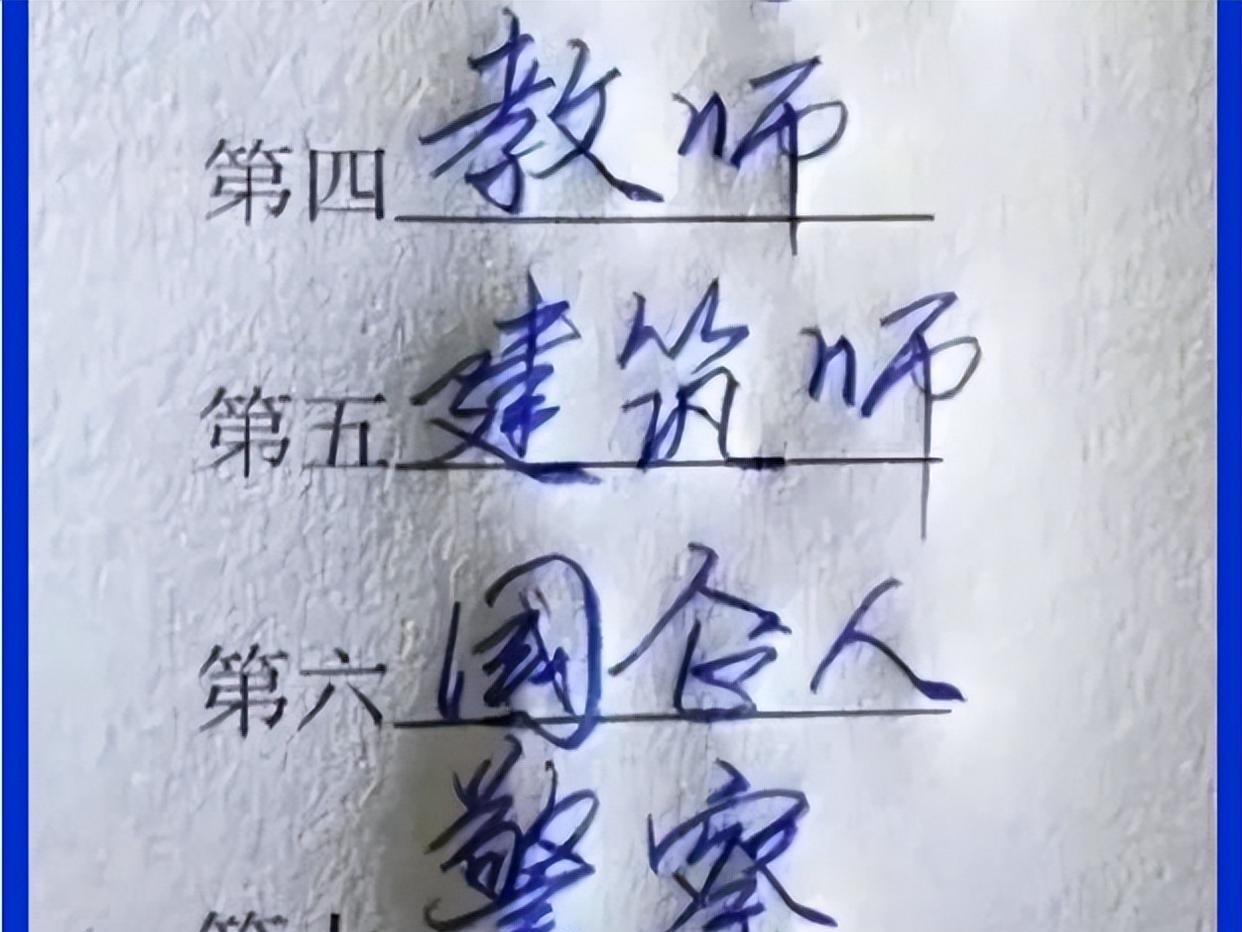 第四 教师
第五 建筑师
第六 国合人
第 警察